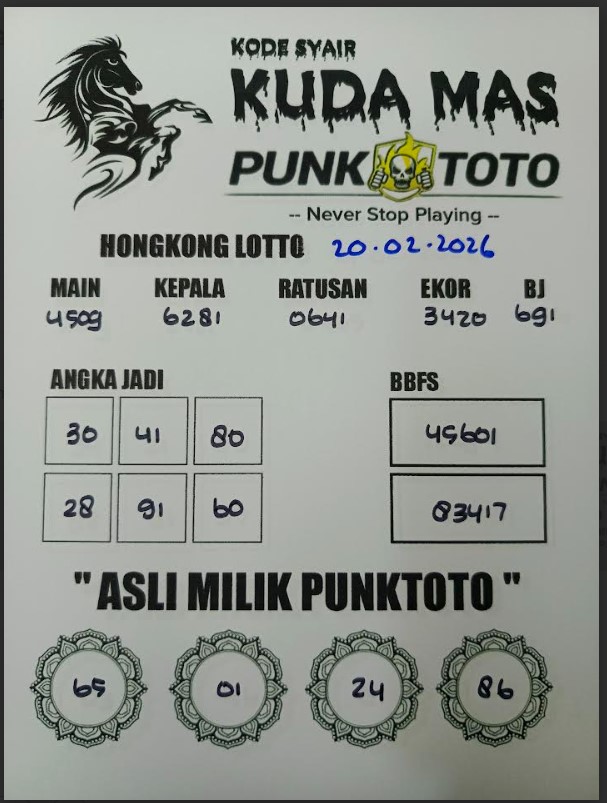 KODE SYAIR
KUDA MAS
PUNK TOTO
-- Never Stop Playing --
HONGKONG LOTTO 20.02.2026
MAIN KEPALA RATUSAN EKOR BJ
4509 6281 0641 3420 691
ANGKA JADI BBFS
30 41 80 45601
28 91 60 83417
" ASLI MILIK PUNKTOTO "
65 01 24 86